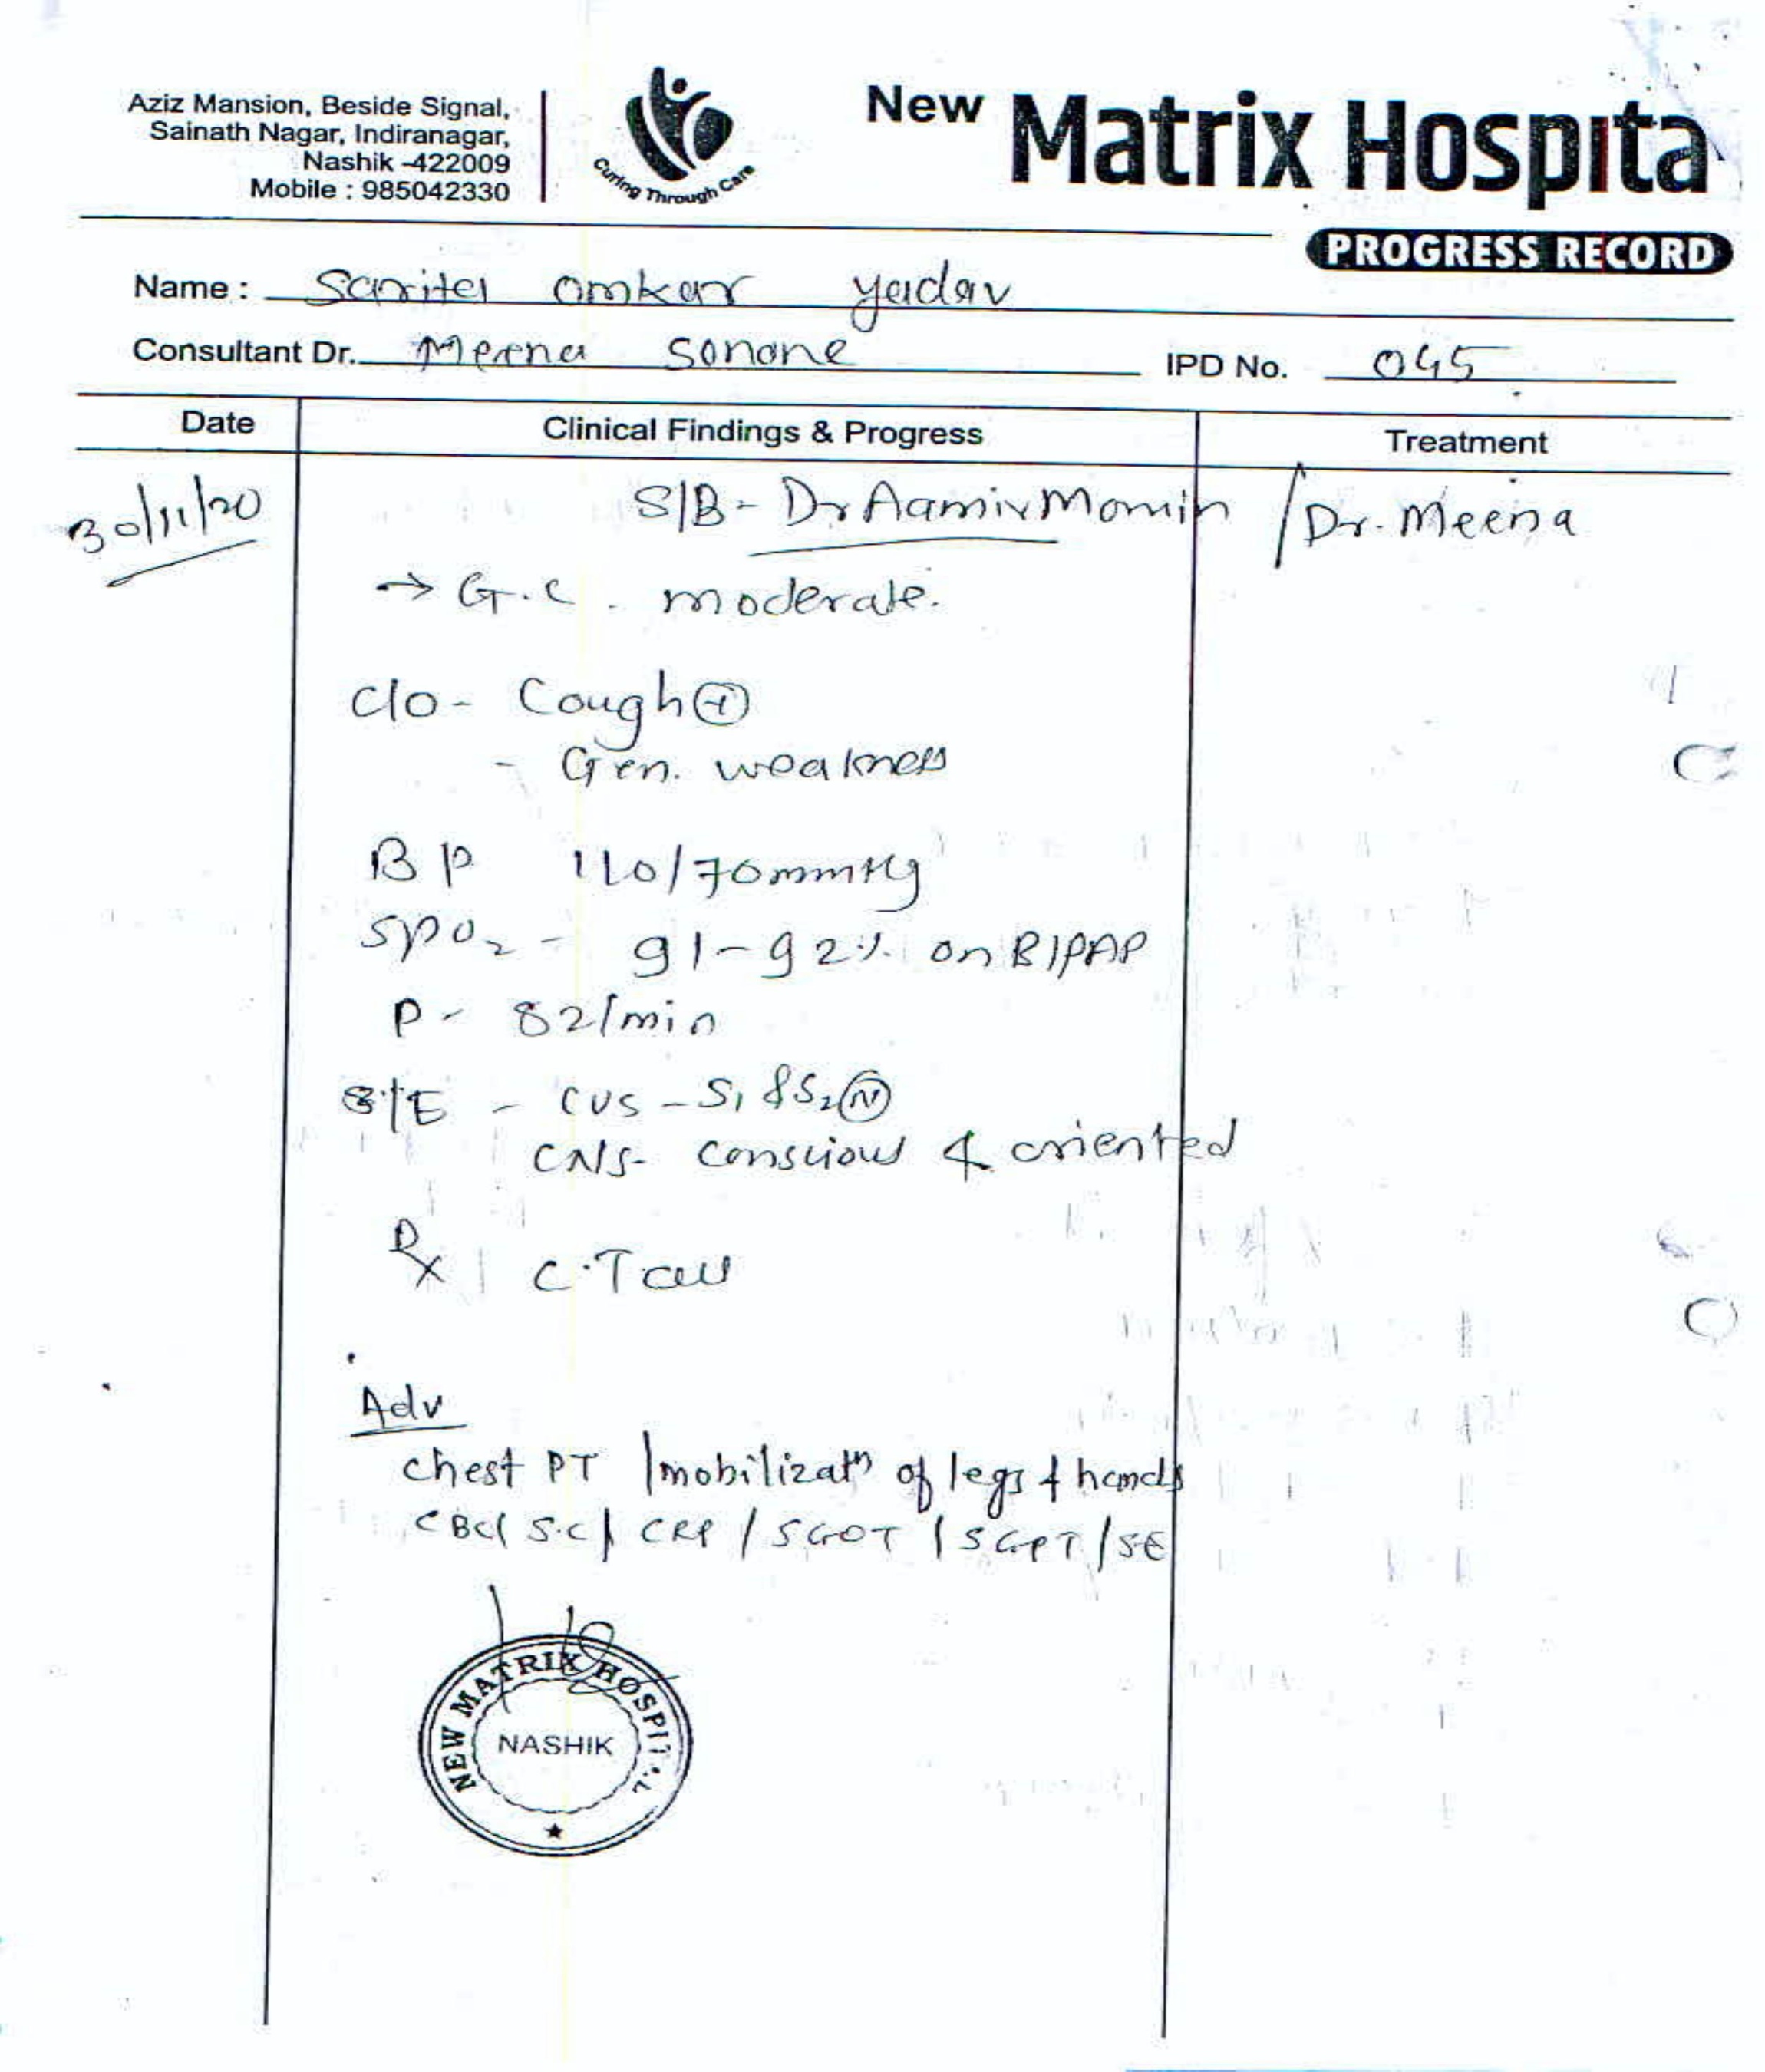 Aziz Mansion, Beside Signal,
Sainath Nagar, Indiranagar,
Nashik -422009
Mobile : 985042330
Curing Through Care
New Matrix Hospita
PROGRESS RECORD
Name : Sarita omkar yadav
Consultant Dr. Meena Sonone IPD No. 045
Date Clinical Findings & Progress Treatment
30/11/20 S/B - Dr Aamir Momin / Dr. Meena
→ G.C. moderate.
C/o - Cough (+)
- Gen. weakness
BP 110/70mmHg
SPO2 - 91-92% on BIPAP
P - 82/min
S/E - CVS - S1 & S2 (N)
CNS - conscious & oriented
Rx C.T
Adv
chest PT / mobilizatn of legs & hands
CBC / S.C / CRP / SGOT / SGPT / SE
NEW MATRIX HOSPITAL
NASHIK